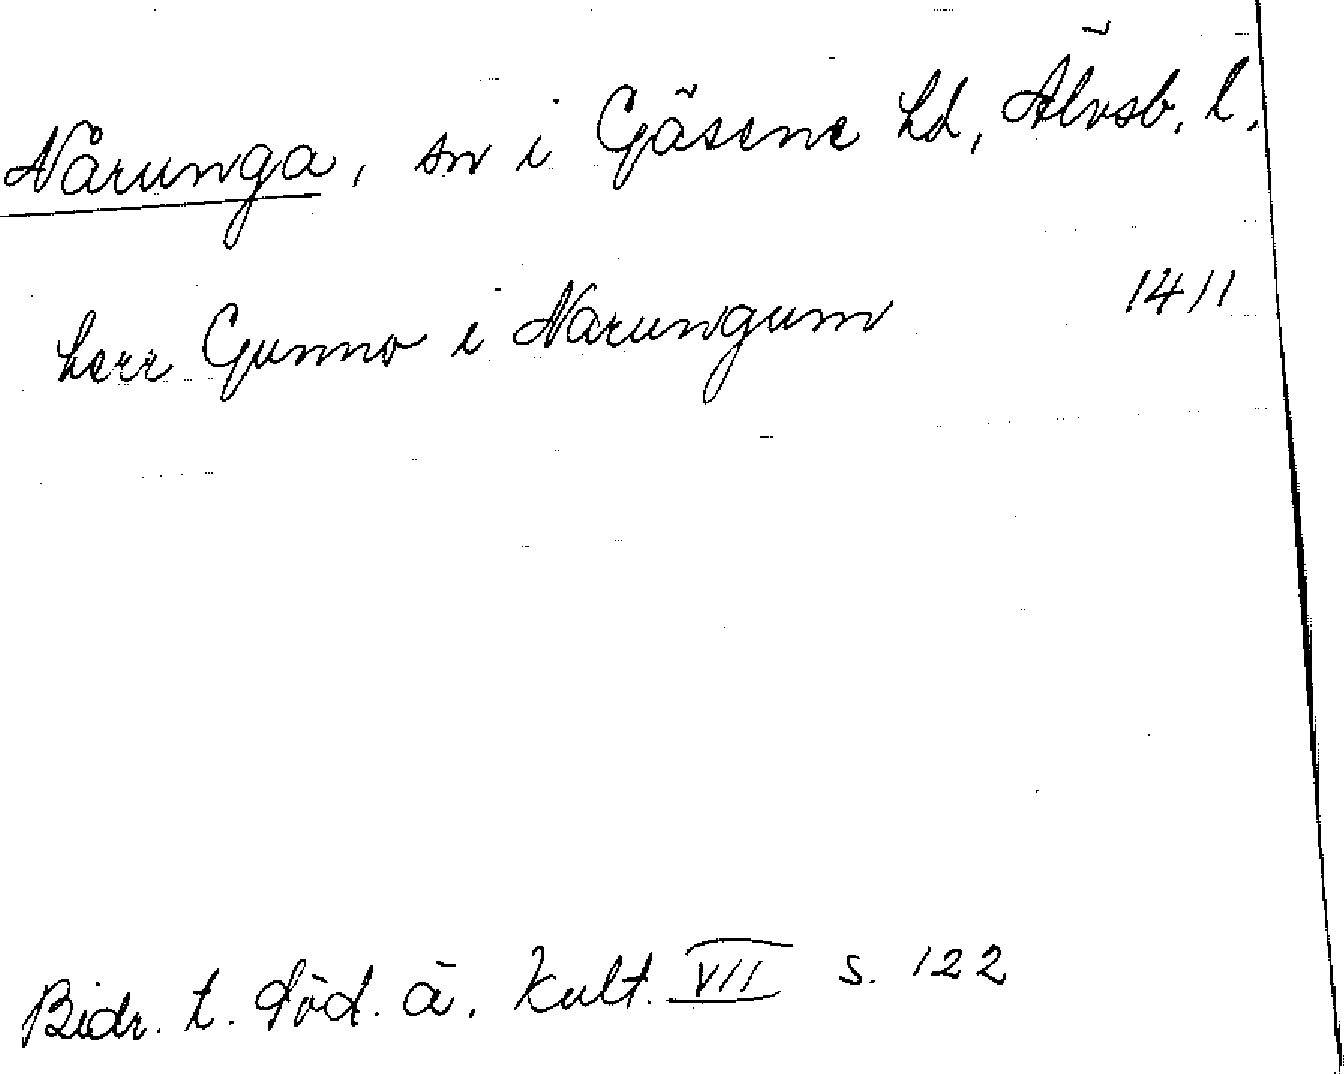 Nårunga, sn i Gäsene hd, Älvsb. l.
herr Gunno i Narungum 1411
Bidr. t. Söd. ä. Kult. VII s. 122